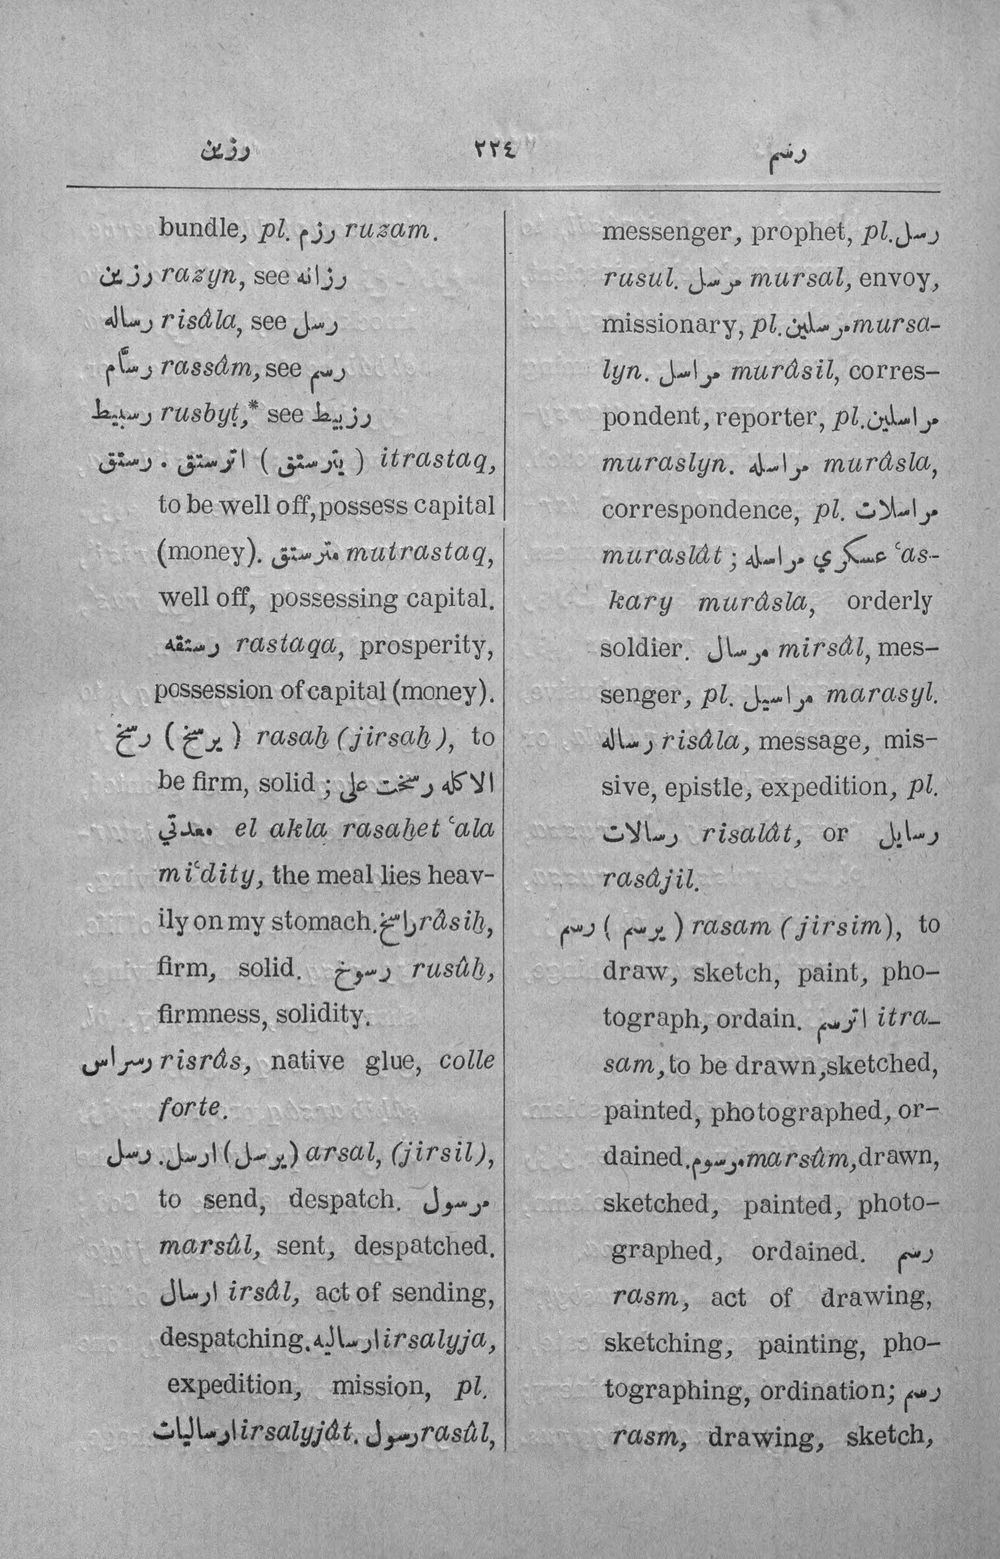 رزين ٢٢٤ رسم
bundle, pl. رزم ruzam.
رزين razyn, see رزانه
رساله risâla, see رسل
رسّام rassâm, see رسم
رسبيط rusbyṭ,* see رزبيط
رستق . اترستق ( يترستق ) itrastaq,
to be well off, possess capital
(money). مترستق mutrastaq,
well off, possessing capital.
رستقه rastaqa, prosperity,
possession of capital (money).
رسخ ( يرسخ ) rasaḫ (jirsaḫ), to
be firm, solid ; الاكله رسخت على
معدتي el akla rasaḫet ʿala
miʿdity, the meal lies heav-
ily on my stomach. راسخ râsiḫ,
firm, solid. رسوخ rusûḫ,
firmness, solidity.
رسراس risrâs, native glue, colle
forte.
رسل. ارسل (يرسل) arsal, (jirsil),
to send, despatch. مرسول
marsûl, sent, despatched.
ارسال irsâl, act of sending,
despatching. ارساليه irsalyja,
expedition, mission, pl.
ارساليات irsalyjât. رسول rasûl,
messenger, prophet, pl. رسل
rusul. مرسل mursal, envoy,
missionary, pl. مرسلين mursa-
lyn. مراسل murâsil, corres-
pondent, reporter, pl. مراسلين
muraslyn. مراسله murâsla,
correspondence, pl. مراسلات
muraslât ; عسكري مراسله ʿas-
kary murâsla, orderly
soldier. مرسال mirsâl, mes-
senger, pl. مراسيل marasyl.
رساله risâla, message, mis-
sive, epistle, expedition, pl.
رسالات risalât, or رسايل
rasâjil.
رسم ( يرسم ) rasam (jirsim), to
draw, sketch, paint, pho-
tograph, ordain. اترسم itra-
sam, to be drawn, sketched,
painted, photographed, or-
dained. مرسوم marsûm, drawn,
sketched, painted, photo-
graphed, ordained. رسم
rasm, act of drawing,
sketching, painting, pho-
tographing, ordination; رسم
rasm, drawing, sketch,